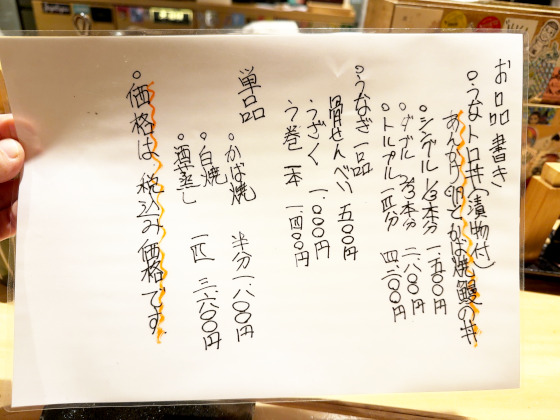 お品書き
○うなトロ丼（漬物付）
あんかけ卵とかば焼鰻の丼
○シングル 1/3本分 一、五〇〇円
○ダブル 2/3本分 二、八〇〇円
○トリプル 一匹分 四、二〇〇円
○うなぎ一品
骨せんべい 五〇〇円
うざく 一、〇〇〇円
う巻 一本 一、四〇〇円
単品
○かば焼 半分 一、八〇〇円
○白焼
○酒蒸し 一匹 三、六〇〇円
○価格は、税込み価格です。